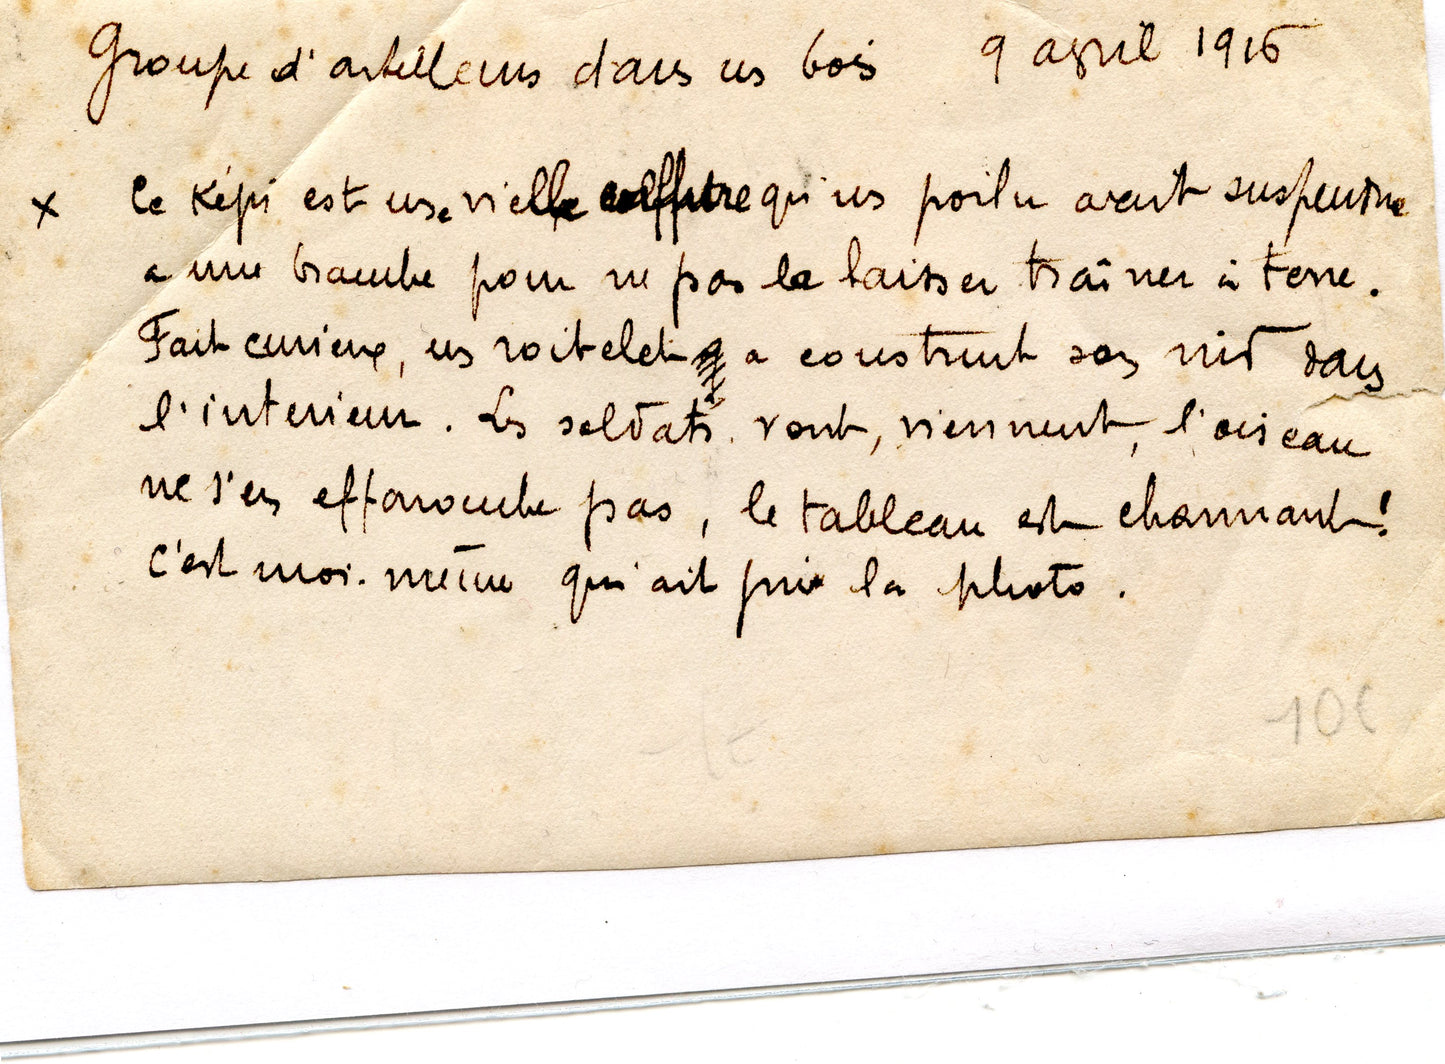 Groupe d'artilleurs dans un bois 9 avril 1916
x Ce képi est une vielle coiffure qu'un poilu avait suspendue
a une branche pour ne pas le laisser traîner à terre.
Fait curieux, un roitelet a construit son nid dans
l'interieur. Les soldats vont, viennent, l'oiseau
ne s'en effarouche pas, le tableau est charmant!
C'est moi-même qui ait pris la photo.
10€